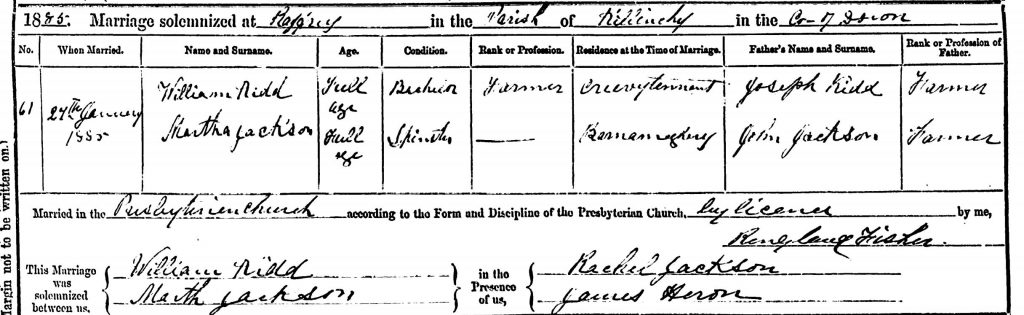 1885. Marriage solemnized at Raffrey in the Parish of Killinchy in the Co of Down
No. When Married. Name and Surname. Age. Condition. Rank or Profession. Residence at the Time of Marriage. Father's Name and Surname. Rank or Profession of Father.
61 27th January 1885 William Kidd Full age Bachelor Farmer Creevytennant Joseph Kidd Farmer
Martha Jackson Full age Spinster — Barnamaghery John Jackson Farmer
Married in the Presbyterian Church according to the Form and Discipline of the Presbyterian Church, by license by me,
Fisher.
This Marriage was solemnized between us, William Kidd in the Presence of us, Rachel Jackson
Marth Jackson James Heron
Margin not to be written on.)